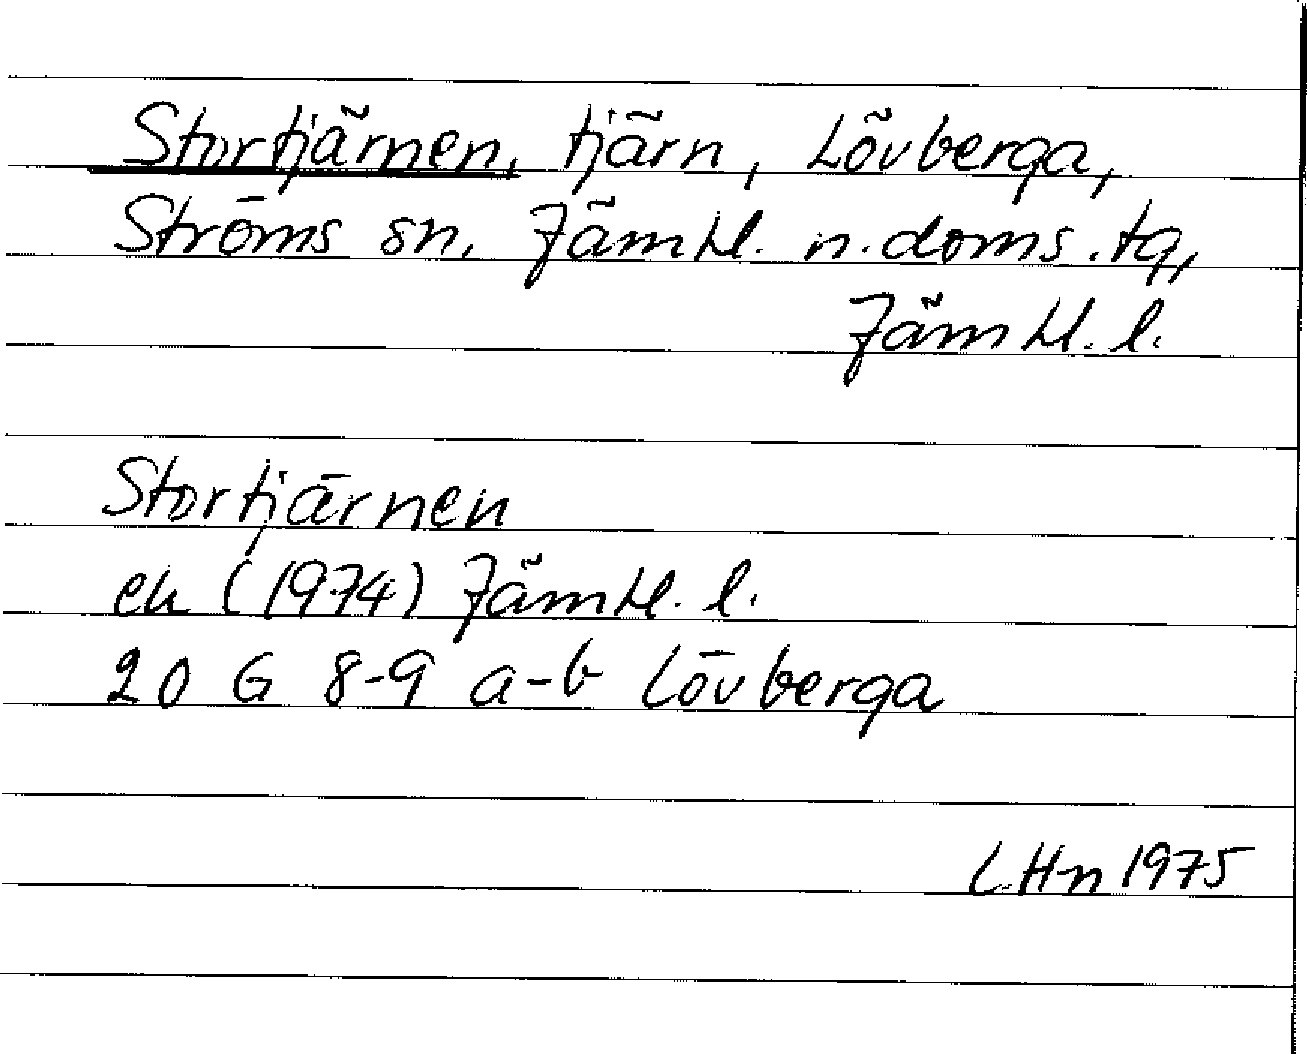 Stortjärnen, tjärn, Lövberga,
Ströms sn, Jämtl. n. doms. tg,
Jämtl. l.
Stortjärnen
ek (1974) Jämtl. l.
20 G 8-9 a-b Lövberga
L Hn 1975